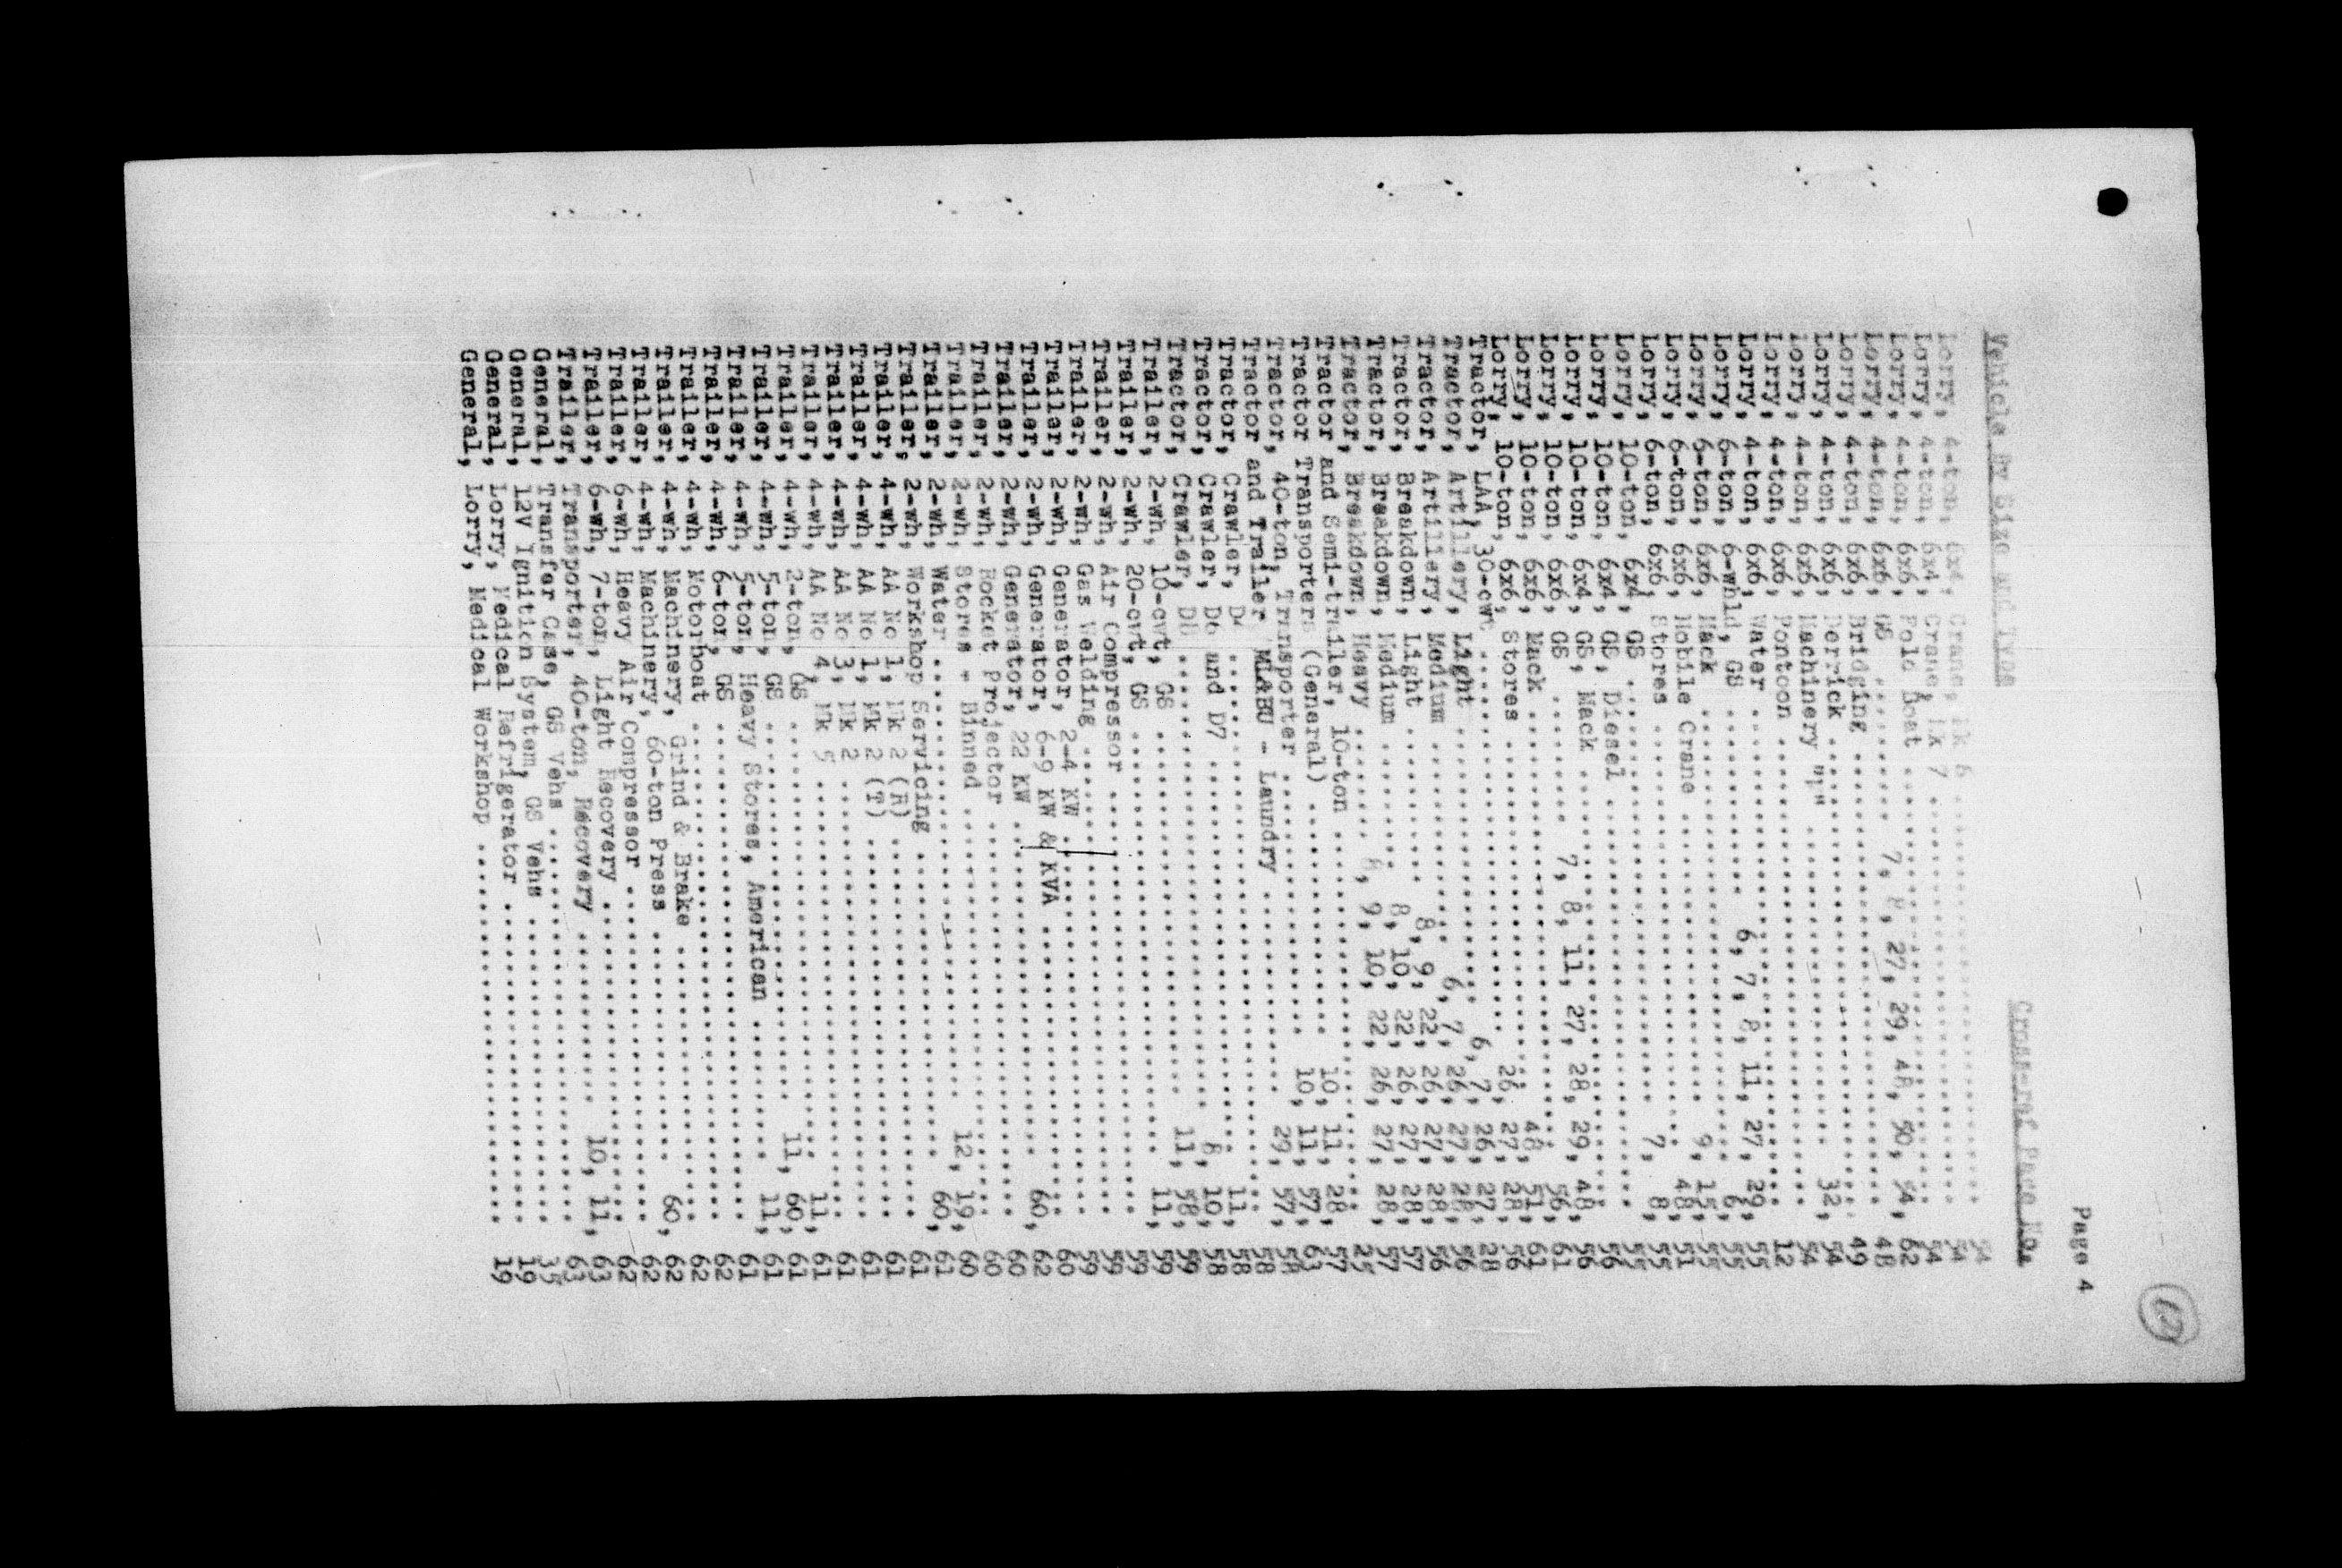 Page 4
Vehicle By Size and Type Cross-ref Page Nos
Lorry, 4-ton, 6x4, Crane, Mk 6 ........ 54
Lorry, 4-ton, 6x4, Crane, Mk 7 ........ 54
Lorry, 4-ton, 6x6, Folo Boat ........ 54
Lorry, 4-ton, 6x6, GS ........ 7, 8, 27, 29, 48, 50, 54, 62
Lorry, 4-ton, 6x6, Bridging ........ 48
Lorry, 4-ton, 6x6, Derrick ........ 49
Lorry, 4-ton, 6x6, Machinery "I" ........ 32, 54
Lorry, 4-ton, 6x6, Pontoon ........ 54
Lorry, 4-ton, 6x6, Water ........ 12
Lorry, 6-ton, 6-whld, GS ........ 6, 7, 8, 11, 27, 29, 55
Lorry, 6-ton, 6x6, Mack ........ 6, 55
Lorry, 6-ton, 6x6, Mobile Crane ........ 9, 15, 55
Lorry, 6-ton, 6x6, Stores ........ 48, 51
Lorry, 10-ton, 6x4, GS ........ 7, 8, 55
Lorry, 10-ton, 6x4, GS, Diesel ........ 55
Lorry, 10-ton, 6x4, GS, Mack ........ 56
Lorry, 10-ton, 6x6, GS ........ 7, 8, 11, 27, 28, 29, 48, 56
Lorry, 10-ton, 6x6, Mack ........ 56, 61
Lorry, 10-ton, 6x6, Stores ........ 48, 51, 61
Tractor, LAA, 30-cwt ........ 26, 27, 28, 56
Tractor, Artillery, Light ........ 6, 7, 26, 27, 28
Tractor, Artillery, Medium ........ 6, 7, 26, 27, 28, 56
Tractor, Breakdown, Light ........ 8, 9, 22, 26, 27, 28, 56
Tractor, Breakdown, Medium ........ 8, 10, 22, 26, 27, 28, 57
Tractor, Breakdown, Heavy ........ 8, 9, 10, 22, 26, 27, 28, 57
Tractor and Semi-trailer, 10-ton ........ 25
Tractor Transporters (General) ........ 10, 11, 28,
Tractor, 40-ton, Transporter ........ 10, 11, 57, 63
Tractor and Trailer MLABU - Laundry ........ 29, 57, 58
Tractor, Crawler, D4 ........ 58
Tractor, Crawler, D6 and D7 ........ 11, 58
Tractor, Crawler, D8 ........ 8, 10, 58
Trailer, 2-wh, 10-cwt, GS ........ 11, 58, 59
Trailer, 2-wh, 20-cwt, GS ........ 11, 59
Trailer, 2-wh, Air Compressor ........ 59
Trailer, 2-wh, Gas Welding ........ 59
Trailer, 2-wh, Generator, 2-4 KW ........ 59
Trailer, 2-wh, Generator, 6-9 KW & KVA ........ 60
Trailer, 2-wh, Generator, 22 KW ........ 60, 62
Trailer, 2-wh, Rocket Projector ........ 60
Trailer, 2-wh, Stores - Binned ........ 60
Trailer, 2-wh, Water ........ 12, 19, 60
Trailer, 2-wh, Workshop Servicing ........ 60, 61
Trailer, 4-wh, AA No 1, Mk 2 (R) ........ 61
Trailer, 4-wh, AA No 1, Mk 2 (T) ........ 61
Trailer, 4-wh, AA No 3, Mk 2 ........ 61
Trailer, 4-wh, AA No 4, Mk 5 ........ 61
Trailer, 4-wh, 2-ton, GS ........ 11, 61
Trailer, 4-wh, 5-ton, GS ........ 11, 60, 61
Trailer, 4-wh, 5-ton, Heavy Stores, American ........ 11, 61
Trailer, 4-wh, 6-ton, GS ........ 61
Trailer, 4-wh, Motorboat ........ 62
Trailer, 4-wh, Machinery, Grind & Brake ........ 62
Trailer, 4-wh, Machinery, 60-ton Press ........ 60, 62
Trailer, 6-wh, Heavy Air Compressor ........ 62
Trailer, 6-wh, 7-ton, Light Recovery ........ 62
Trailer, Transporter, 40-ton, Recovery ........ 10, 11, 63
General, Transfer Case, GS Vehs ........ 63
General, 12V Ignition System, GS Vehs ........ 35
General, Lorry, Medical Refrigerator ........ 19
General, Lorry, Medical Workshop ........ 19